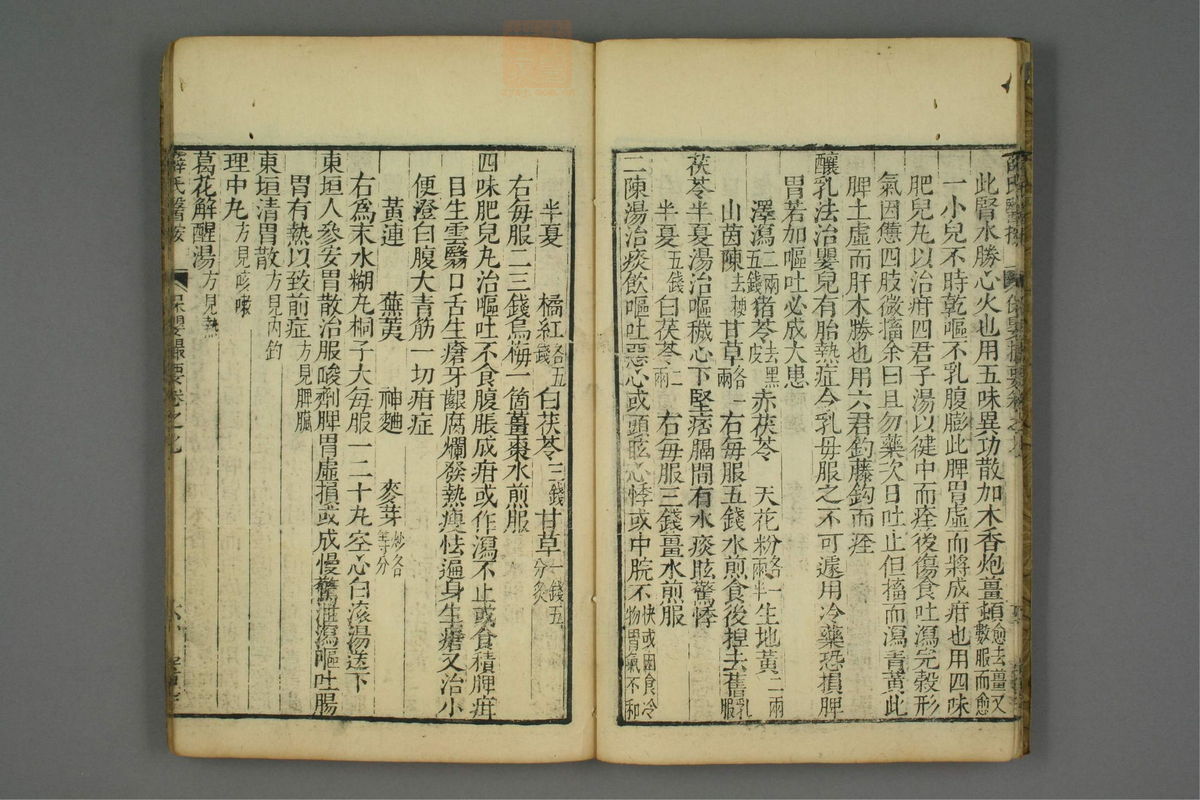 此腎水勝心火也用五味異功散加木香炮薑頓愈去薑又數服而愈
一小兒不時乾嘔不乳腹膨此脾胃虛而將成疳也用四味
肥兒丸以治疳四君子湯以健中而痊後傷食吐瀉完穀形
氣因憊四肢微搐余曰且勿藥次日吐止但搐而瀉青黃此
脾土虛而肝木勝也用六君鈎藤鈎而痊
釀乳法治嬰兒有胎熱症令乳母服之不可遽用冷藥恐損脾
胃若加嘔吐必成大患
澤瀉二兩五錢 猪苓去黑皮 赤茯苓 天花粉各一兩半 生地黃二兩
山茵陳去梗 甘草各一兩 右每服五錢水煎食後捏去舊乳服
茯苓半夏湯治嘔穢心下堅痞膈間有水痰眩驚悸
半夏五錢 白茯苓二兩 右每服三錢薑水煎服
二陳湯治痰飲嘔吐惡心或頭眩心悸或中脘不快或因食冷物胃氣不和
半夏 橘紅各五錢 白茯苓三錢 甘草一錢五分炙
右每服二三錢烏梅一箇薑棗水煎服
四味肥兒丸治嘔吐不食腹脹成疳或作瀉不止或食積脾疳
目生雲翳口舌生瘡牙齦腐爛發熱瘦怯遍身生瘡又治小
便澄白腹大青筋一切疳症
黃連 蕪荑 神麯 麥芽炒各等分
右為末水糊丸桐子大每服一二十丸空心白滾湯送下
東垣人參安胃散治服峻劑脾胃虛損或成慢驚泄瀉嘔吐腸
胃有熱以致前症方見脾臟
東垣清胃散方見內釣
理中丸方見咳嗽
葛花解酲湯方見熱
薛氏醫按 保嬰撮要卷之七